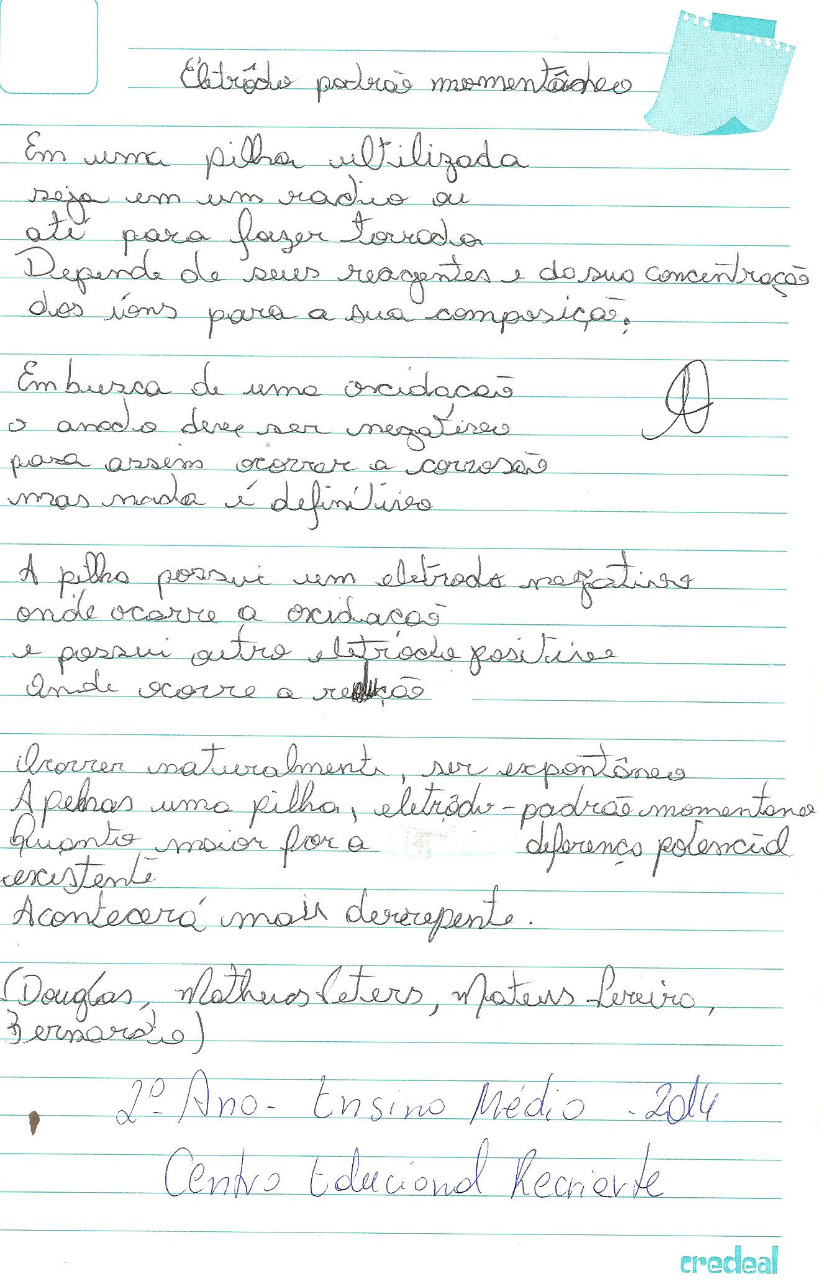 Eletrôdo padrão momentâneo
Em uma pilha ultilizada
seja em um radio ou
até para fazer torrada
Depende de seus reagentes e da sua concentração
dos íons para a sua composição.
Em busca de uma oxidação
o anodo deve ser negativo
para assim ocorrer a corrosão
mas nada é definitivo
A pilha possui um eletrodo negativo
onde ocorre a oxidação
e possui outro eletrodo positivo
Onde ocorre a redução
Ocorrer naturalmente, ser expontâneo
Apenas uma pilha, eletrôdo-padrão momentaneo
Quanto maior for a diferença potencial
existente
Acontecerá mais derrepente.
(Douglas, Matheus Peters, Mateus Pereira,
Bernardo)
2º Ano - Ensino Médio - 2014
Centro Educacional Recriarte
credeal